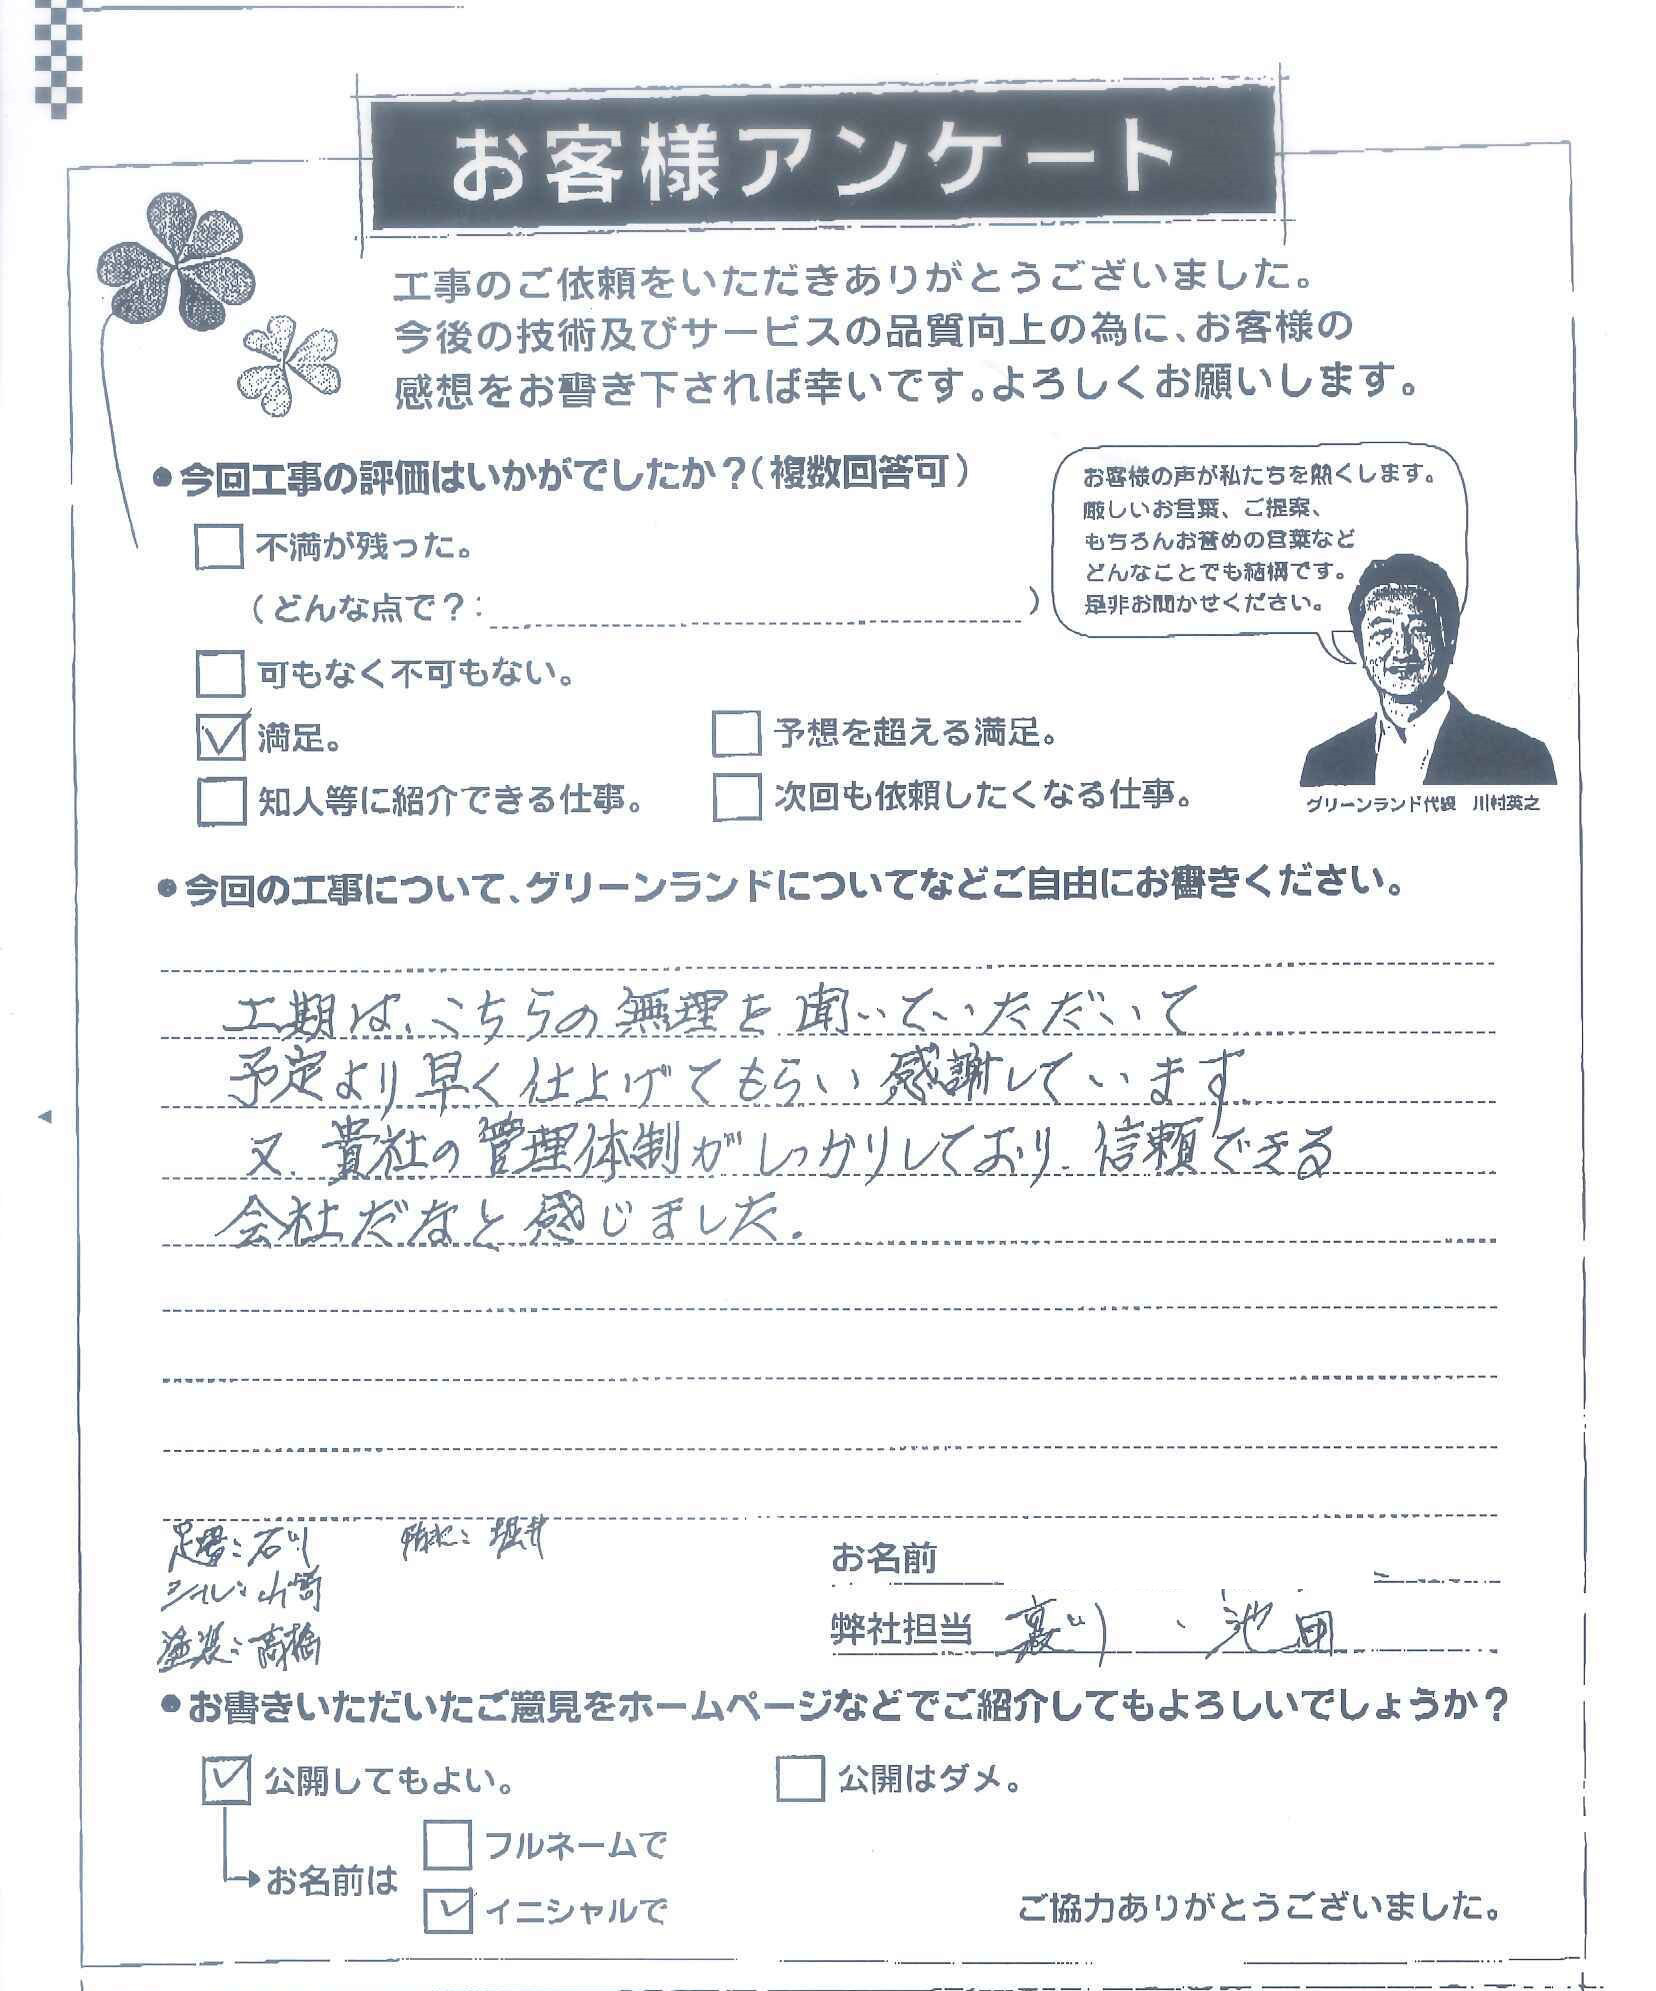 お客様アンケート
工事のご依頼をいただきありがとうございました。
今後の技術及びサービスの品質向上の為に、お客様の
感想をお書き下されば幸いです。よろしくお願いします。
●今回工事の評価はいかがでしたか?(複数回答可)
不満が残った。
(どんな点で?: )
可もなく不可もない。
満足。
予想を超える満足。
知人等に紹介できる仕事。
次回も依頼したくなる仕事。
お客様の声が私たちを熱くします。
厳しいお言葉、ご提案、
もちろんお誉めの言葉など
どんなことでも結構です。
是非お聞かせください。
グリーンランド代表 川村英之
●今回の工事について、グリーンランドについてなどご自由にお書きください。
工期は、こちらの無理を聞いていただいて
予定より早く仕上げてもらい感謝しています。
又、貴社の管理体制がしっかりしており、信頼できる
会社だなと感じました。
足場:石川
シール:山崎
塗装:高橋
堀井
お名前
弊社担当 ・池田
●お書きいただいたご意見をホームページなどでご紹介してもよろしいでしょうか?
公開してもよい。
公開はダメ。
お名前は
フルネームで
イニシャルで
ご協力ありがとうございました。